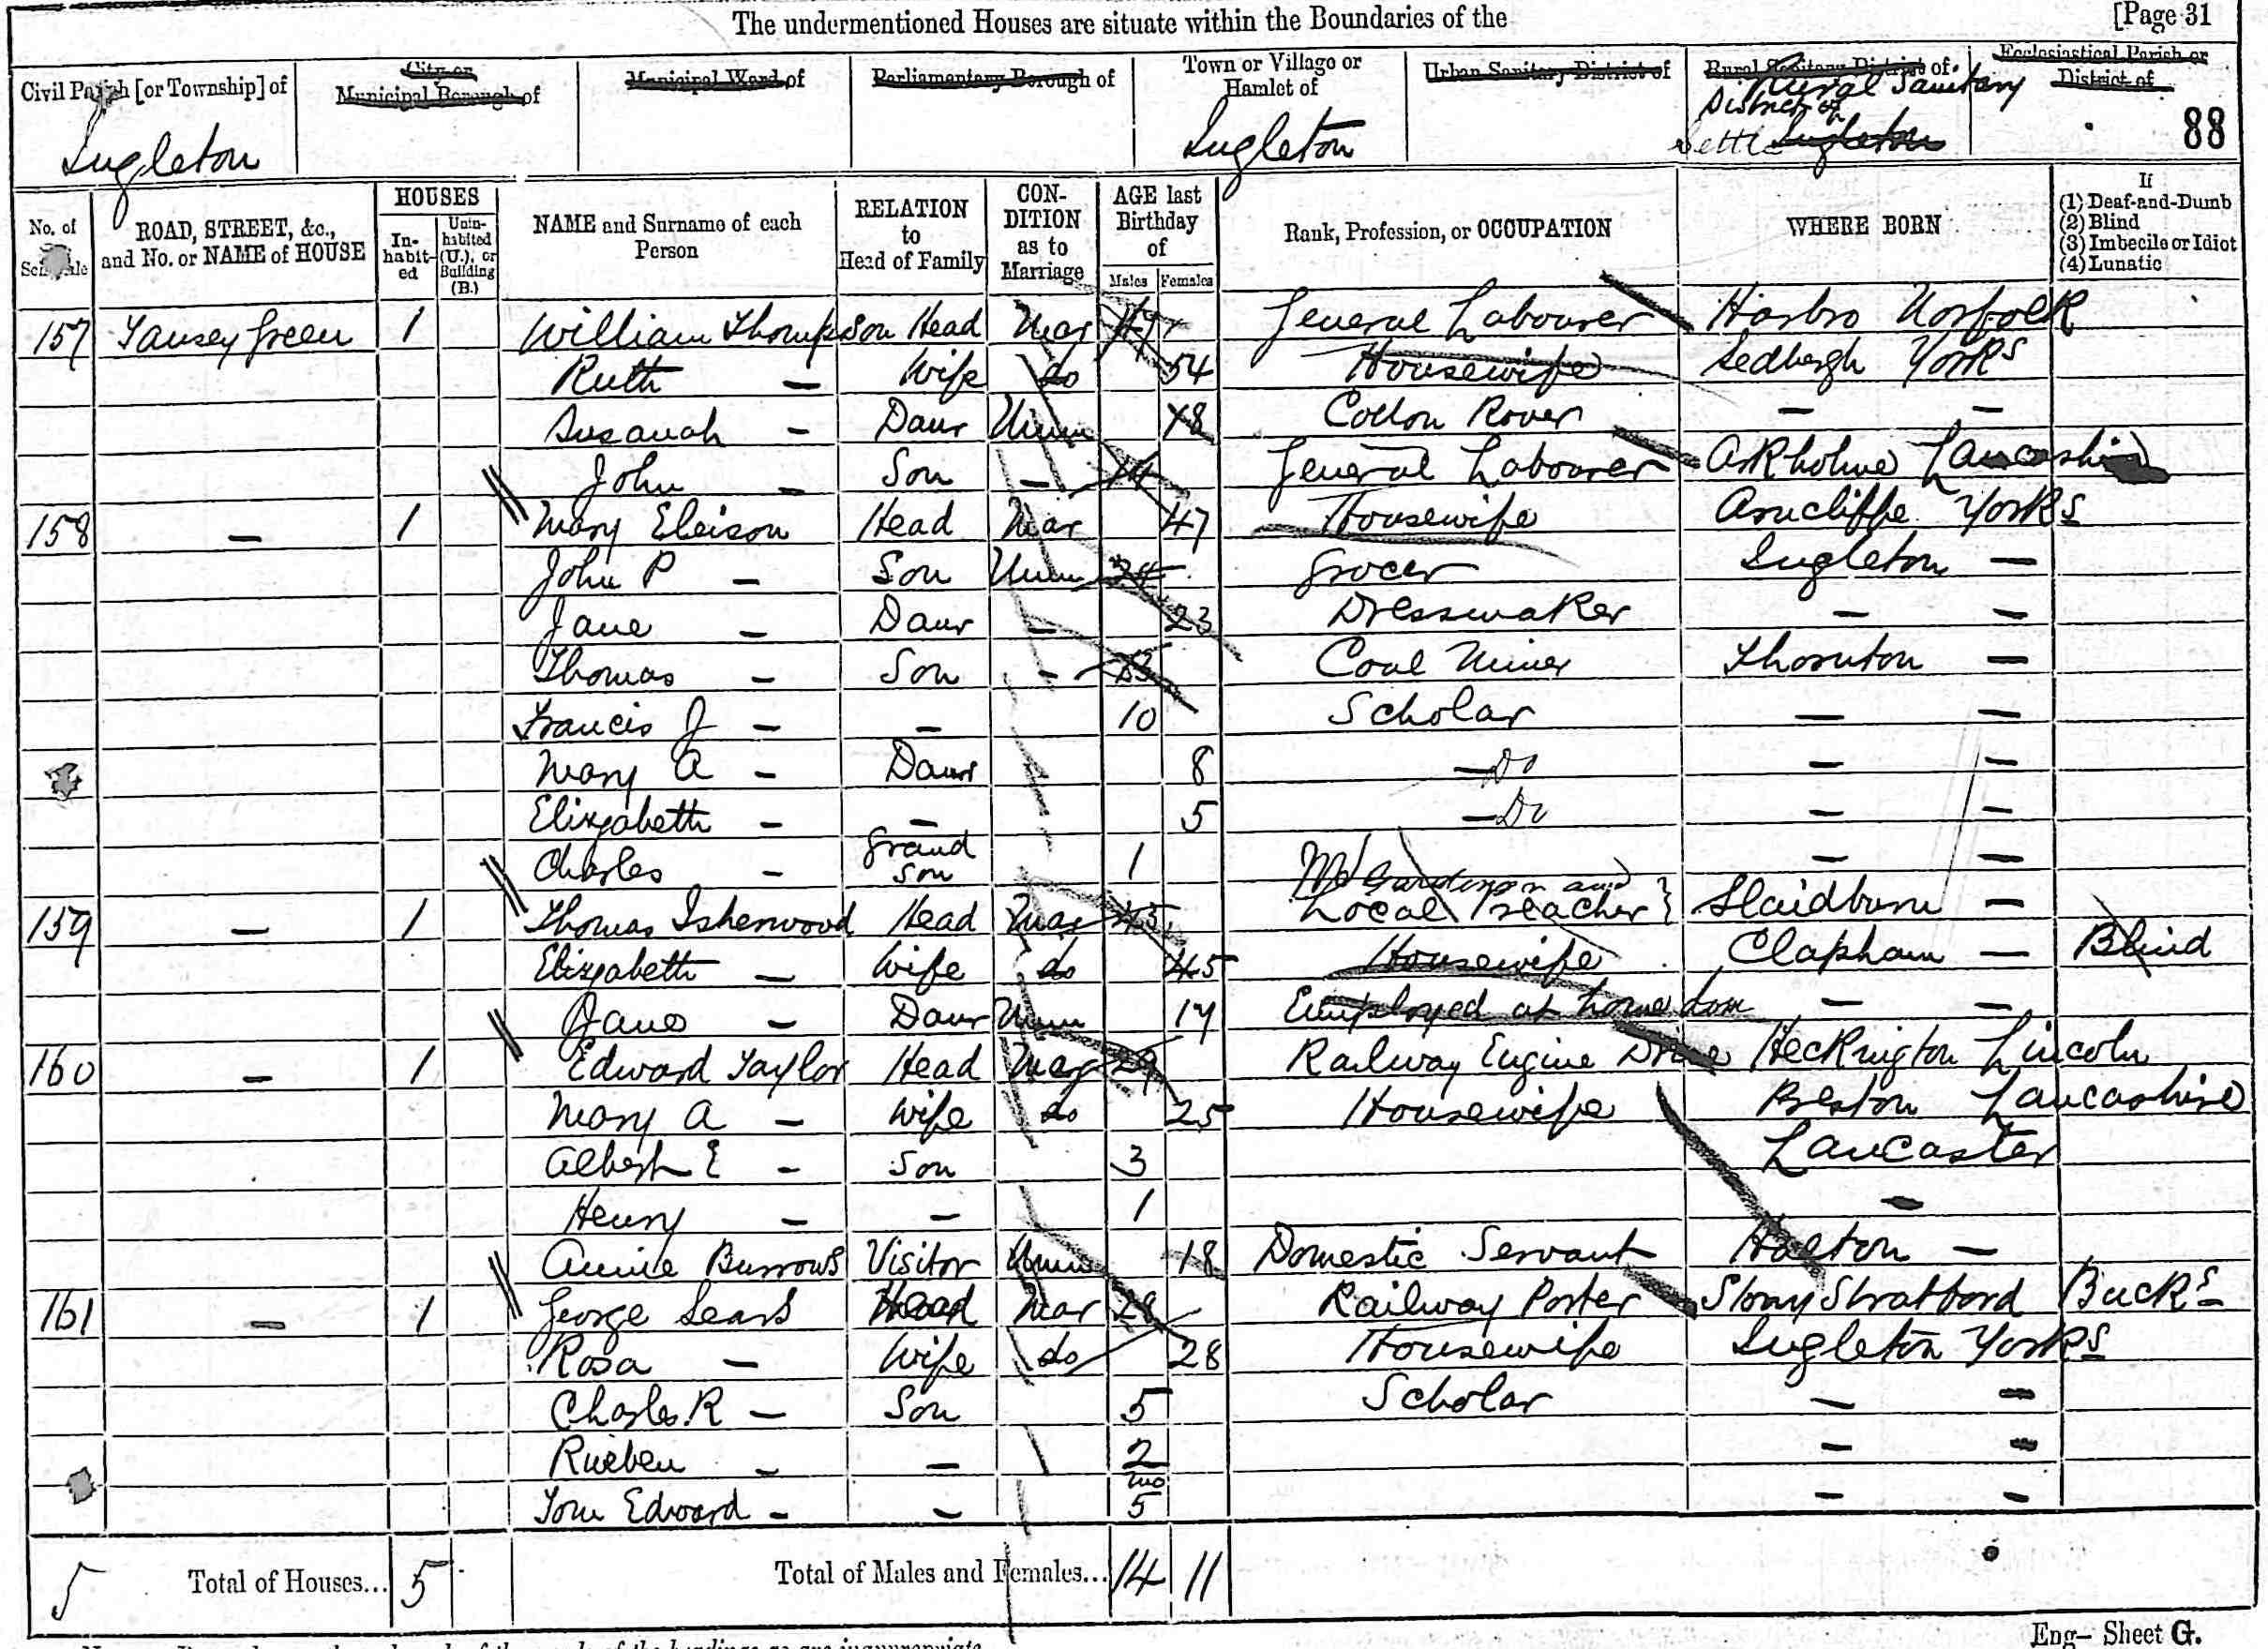 The undermentioned Houses are situate within the Boundaries of the
[Page 31
Civil Parish [or Township] of
City or Municipal Borough of
Municipal Ward of
Parliamentary Borough of
Town or Village or Hamlet of
Urban Sanitary District of
Rural Sanitary District of
Ecclesiastical Parish or District of
Rural Sanitary
District of
Ingleton
Ingleton
Settle Ingleton
88
No. of Schedule
ROAD, STREET, &c., and No. or NAME of HOUSE
HOUSES
In-habit-ed
Unin-habited (U.), or Building (B.)
NAME and Surname of each Person
RELATION to Head of Family
CON-DITION as to Marriage
AGE last Birthday of
Males Females
Rank, Profession, or OCCUPATION
WHERE BORN
If
(1) Deaf-and-Dumb
(2) Blind
(3) Imbecile or Idiot
(4) Lunatic
157 Tansey Green 1 William Thompson Head Mar General Labourer Harbro Norfolk
Ruth — Wife do 54 Housewife Sedbergh Yorks
Susanah — Daur Unm 18 Cotton Rover — —
John — Son — 14 General Labourer Arkholme Lancashire
158 — 1 Mary Eleison Head Mar 47 Housewife Arncliffe Yorks
John P — Son Unm 24 Grocer Ingleton —
Jane — Daur — 23 Dressmaker — —
Thomas — Son — 13 Coal Miner Thornton —
Francis J — — 10 Scholar — —
Mary A — Daur 8 — Do — —
Elizabeth — — 5 — Do — —
Charles — Grand Son 1 — —
159 — 1 Thomas Isherwood Head Mar 45 Local Preacher } Slaidburn —
Elizabeth — Wife do 45 Housewife Clapham — Blind
Jane — Daur Unm 17 Employed at home dom — —
160 — 1 Edward Taylor Head Mar 29 Railway Engine Driver Heckington Lincoln
Mary A — Wife do 25 Housewife Preston Lancashire
Albert E — Son 3 Lancaster
Henry — — 1 —
Annie Burrows Visitor Unm 18 Domestic Servant Halton —
161 — 1 George Sears Head Mar 28 Railway Porter Stony Stratford Bucks
Rosa — Wife do 28 Housewife Ingleton Yorks
Charles R — Son 5 Scholar — —
Rueben — — 2 — —
Tom Edward — — mo 5 — —
5 Total of Houses... 5 Total of Males and Females... 14 11
Eng— Sheet G.